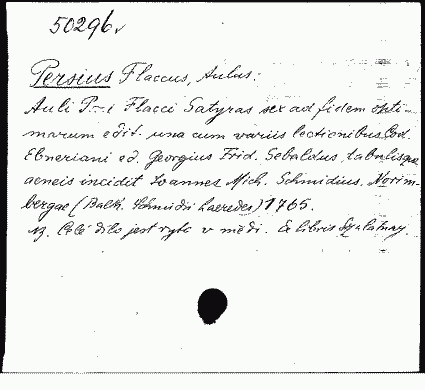 50296
Persius Flaccus, Aulus:
Auli P-i Flacci Satyras sex ad fidem opti-
marum edit. una cum variis lectionibus Cod.
Ebneriani ed. Georgius Frid. Sebaldus, tabulisque
aeneis incidit Ioannes Mich. Schmidius. Norim-
bergae (Balth. Schmidii haeredes) 1765.
Celé dílo jest ryto v mědi. Ex libris Szalatnay